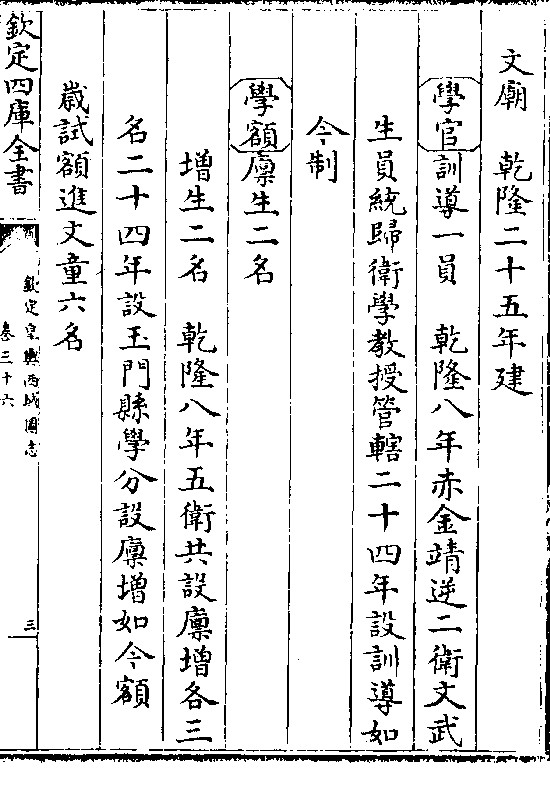 文廟　乾隆二十五年建
學官訓導一員　乾隆八年赤金靖逆二衛文武
生員統歸衛學教授管轄二十四年設訓導如
今制
學額廪生二名
增生二名　乾隆八年五衛共設廪增各三
名二十四年設玉門縣學分設廪增如今額
歲試額進文童六名
欽定四庫全書
欽定皇輿西域圖志
卷三十六
三